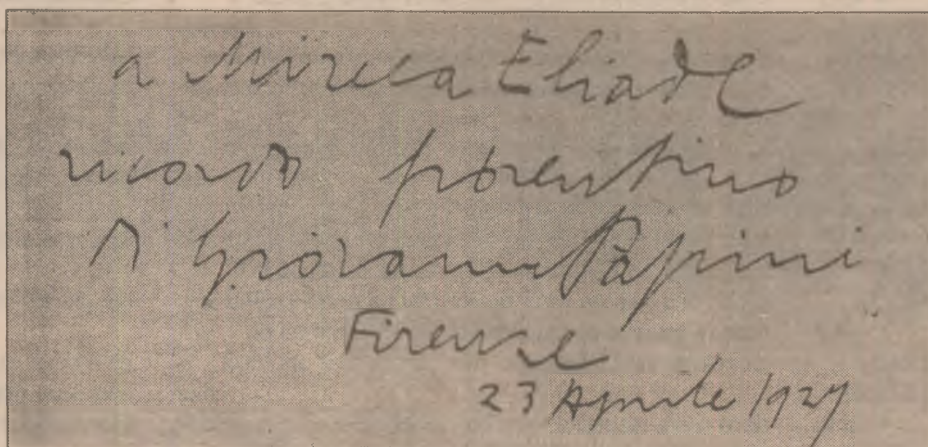 a Mircea Eliade
ricordo fiorentino
di Giovanni Papini
Firenze
23 Aprile 1927